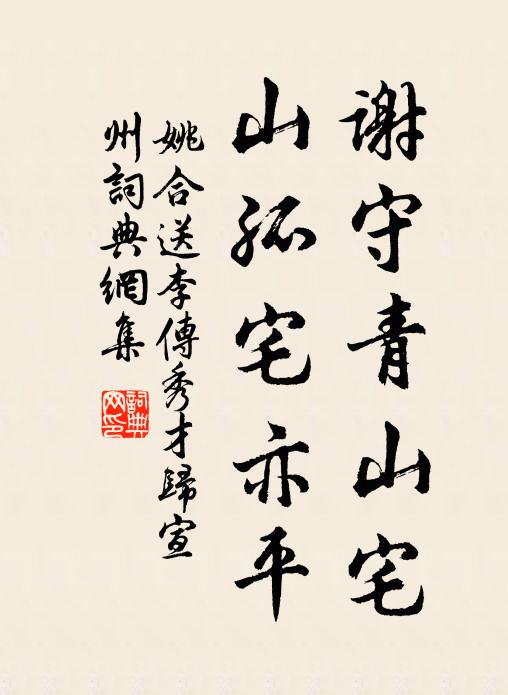 謝守青山宅
山孤宅亦平
姚合送李傳秀才歸宣
州詞典網集
詞典
网印